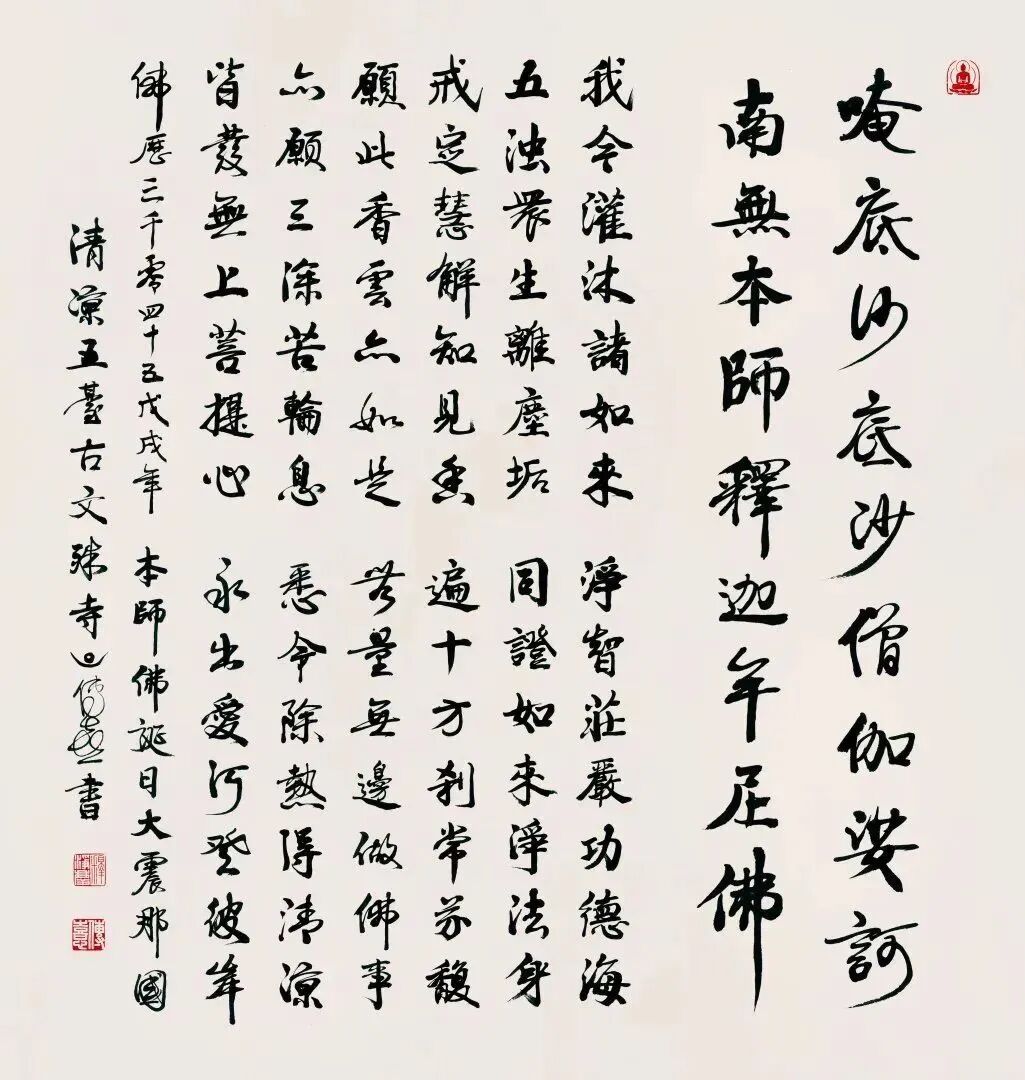 唵底沙底沙僧伽娑訶
南無本師釋迦牟尼佛
我今灌沐諸如來 淨智莊嚴功德海
五浊眾生離塵垢 同證如來淨法身
戒定慧解知見香 遍十方刹常芬馥
願此香雲亦如是 無量無邊做佛事
亦願三涂苦輪息 悉令除熱得清凉
皆發無上菩提心 永出愛河登彼岸
佛歷三千零四十五戊戌年 本師佛誕日大震那國
清凉五臺古文殊寺 書